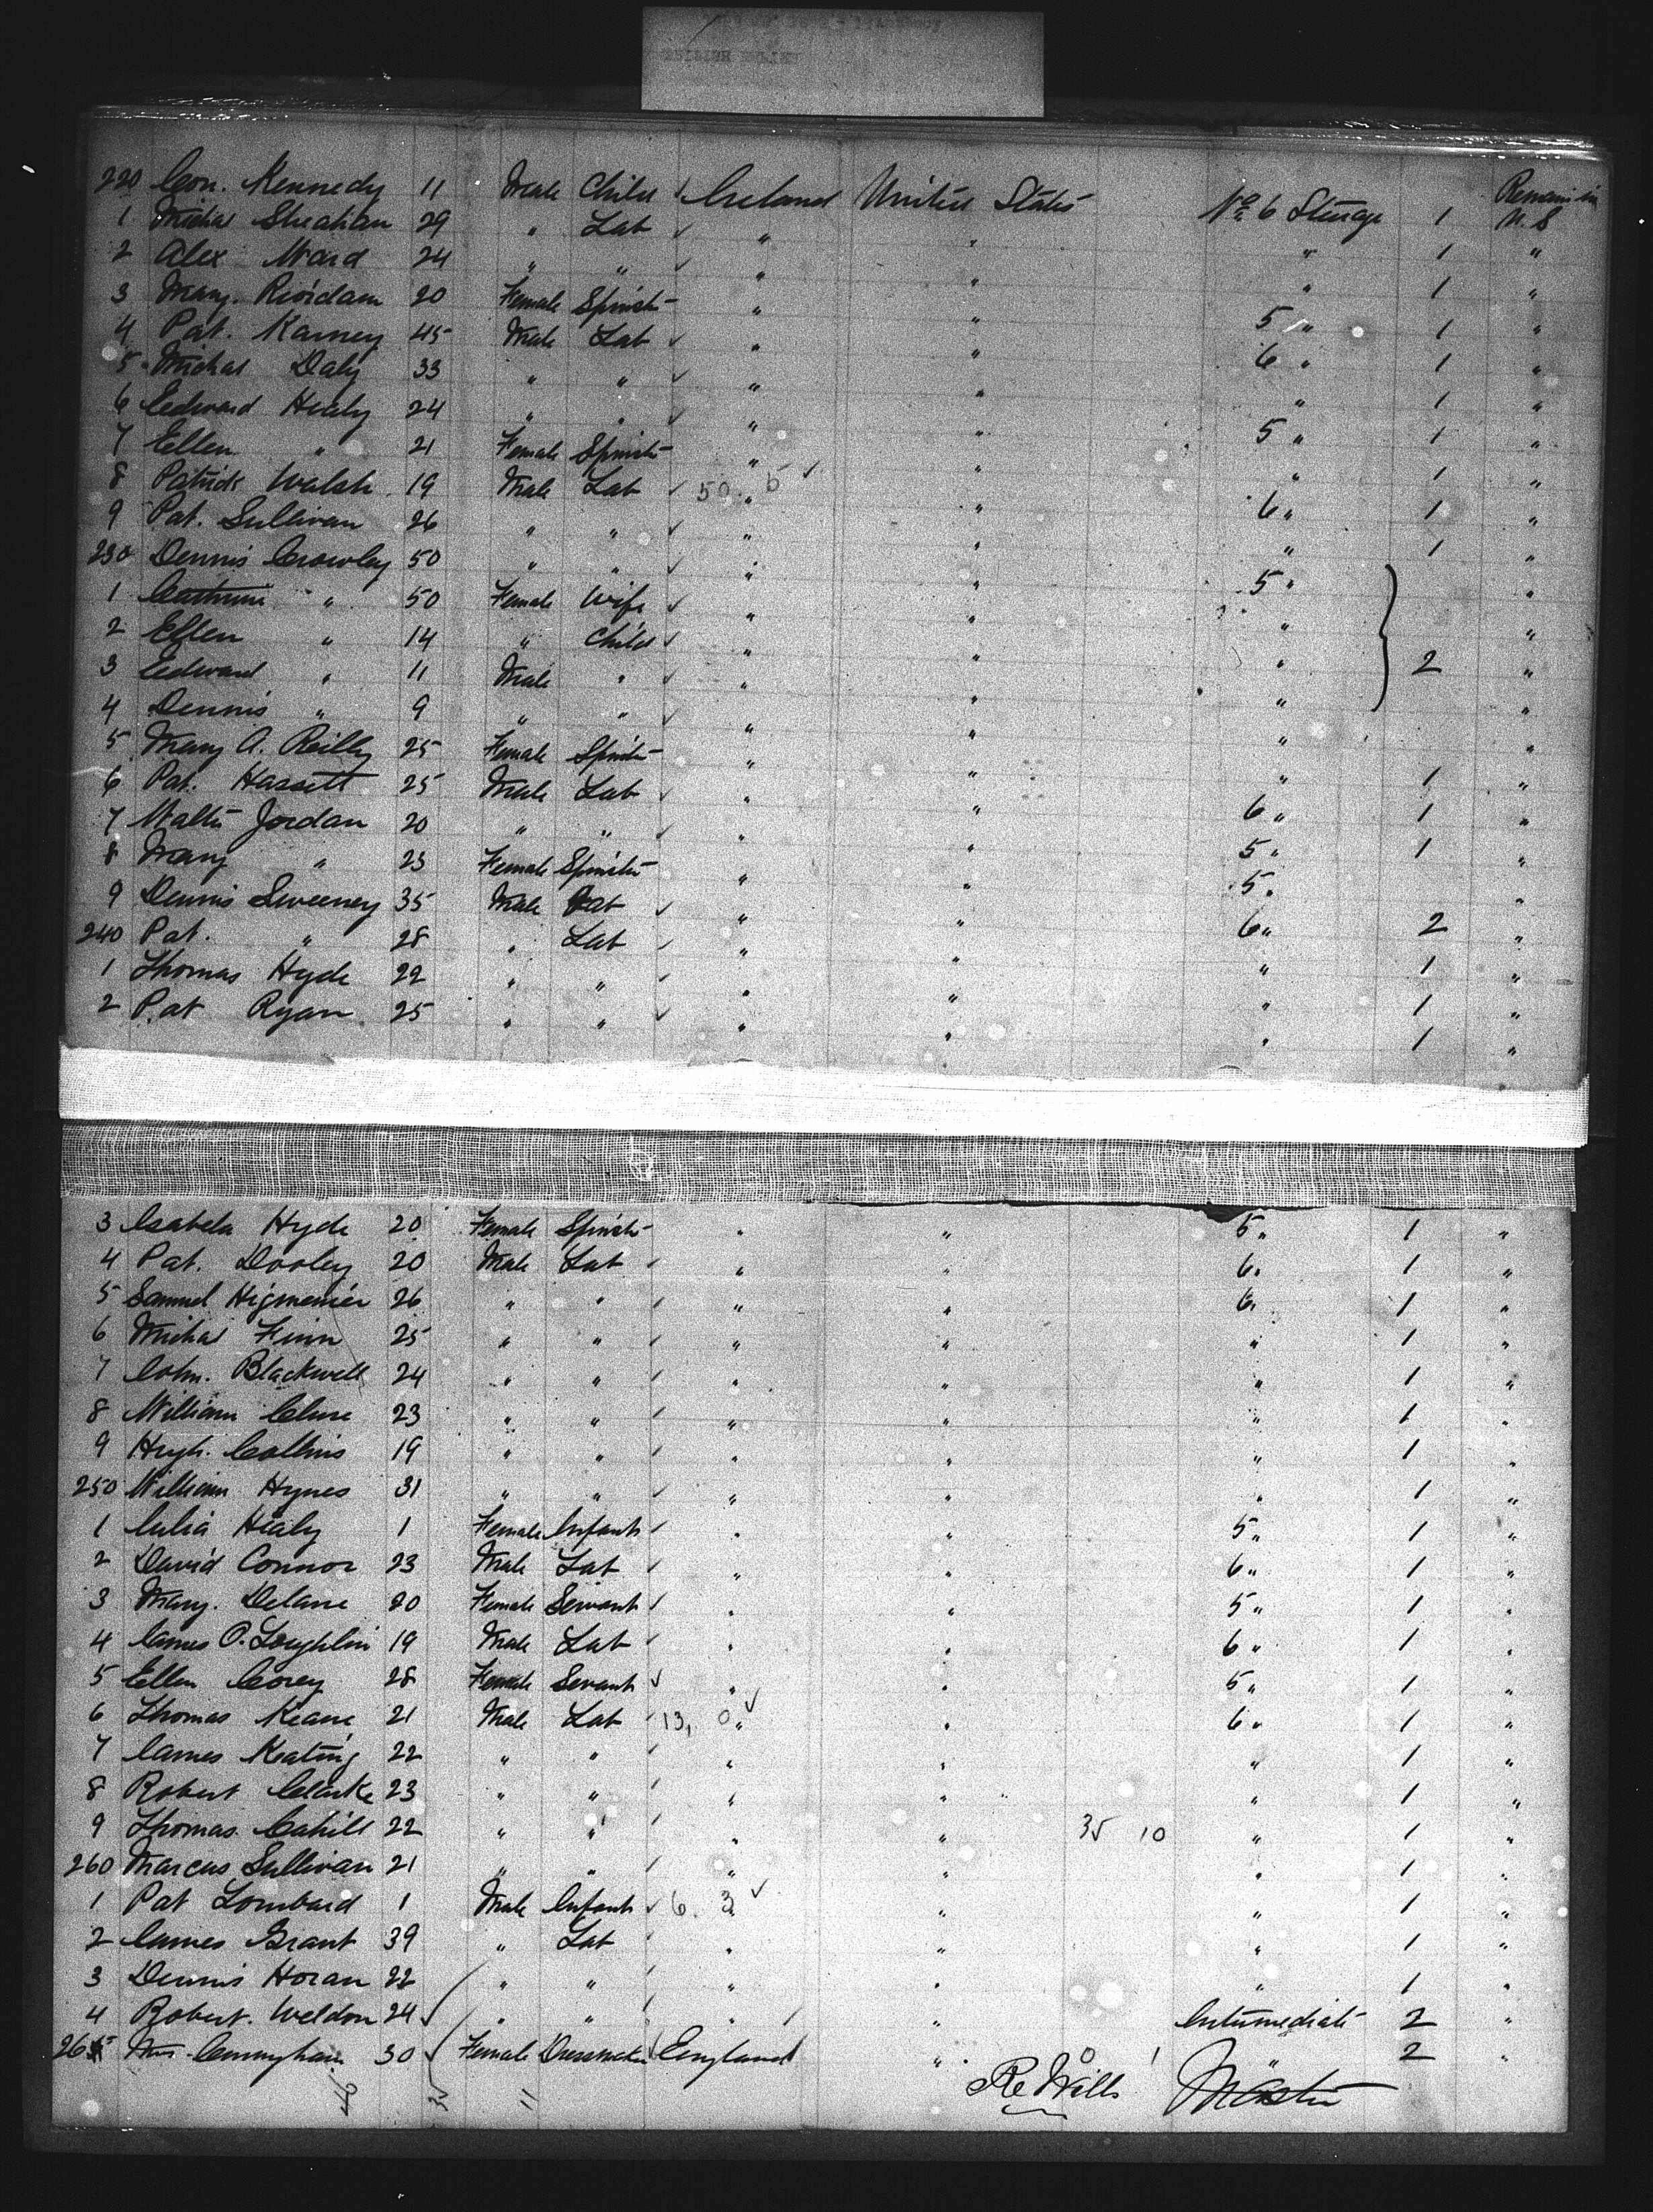 220 Con. Kennedy 11 Male Child ✓ Ireland United States No 6 Steerage 1 Remain in U.S
1 Michal Sheahan 29 " Lab ✓ " " " 1 "
2 Alex Ward 24 " " ✓ " " " 1 "
3 Mary. Riordam 20 Female Spinstr " " 5 " 1 "
4 Pat. Karney 45 Male Lab ✓ " " 6 " 1 "
5 Michal Daly 33 " " ✓ " " " 1 "
6 Edward Healy 24 " " ✓ " " 5 " 1 "
7 Ellen " 21 Female Spinstr " " " 1 "
8 Patrick Walsh 19 Male Lab ✓ 50 " 5 ✓ " 6 " 1 "
9 Pat. Sullivan 26 " " ✓ " " " 1 "
230 Dennis Crowley 50 " " ✓ " " 5 " "
1 Cathrine " 50 Female Wife ✓ " " " "
2 Ellen " 14 " Child ✓ " " " 2 "
3 Edward " 11 Male " ✓ " " " "
4 Dennis " 9 " " ✓ " " " "
5 Mary A. Reilly 25 Female Spinstr " " " 1 "
6 Pat. Hassett 25 Male Lab ✓ " " 6 " 1 "
7 Walter Jordan 20 " " ✓ " " 5 " 1 "
8 Mary " 23 Female Spinstr " " 5 " "
9 Dennis Sweeney 35 Male Lab ✓ " " 6 " 2 "
240 Pat. " 28 " Lab ✓ " " " 1 "
1 Thomas Hyde 22 " " ✓ " " " 1 "
2 Pat Ryan 25 " " ✓ " " " 1 "
3 Isabela Hyde 20 Female Spinstr " " 5 " 1 "
4 Pat. Dooley 20 Male Lab ✓ " " 6 " 1 "
5 Samuel 26 " " ✓ " " 6 " 1 "
6 Michal Finn 25 " " ✓ " " " 1 "
7 John. Blackwell 24 " " ✓ " " " 1 "
8 William Clune 23 " " ✓ " " " 1 "
9 Hugh. Collins 19 " " ✓ " " " 1 "
250 William Hynes 31 " " ✓ " " " 1 "
1 Julia Healy 1 Female Infant ✓ " " 5 " 1 "
2 David Connor 23 Male Lab ✓ " " 6 " 1 "
3 Mary. Delane 20 Female Servant ✓ " " 5 " 1 "
4 James O. Loughlin 19 Male Lab ✓ " " 6 " 1 "
5 Ellen Corey 28 Female Servant ✓ " " 5 " 1 "
6 Thomas Keane 21 Male Lab ✓ 13, 0 " ✓ " 6 " 1 "
7 James Keating 22 " " ✓ " " " 1 "
8 Robert Clarke 23 " " ✓ " " " 1 "
9 Thomas. Cahill 22 " " ✓ " " 35 10 " 1 "
260 Marcus Sullivan 21 " " ✓ " " " 1 "
1 Pat Lombard 1 Male Infant ✓ 6. 3 " ✓ " " 1 "
2 James Grant 39 " Lab ✓ " " " 1 "
3 Dennis Horan 22 " " ✓ " " " 1 "
4 Robert. Weldon 24 ✓ " " ✓ " " Intermediate 2 "
265 Mrs. Cunnyham 30 ✓ Female Dressmaker England " " 2 "
Re Wills Master